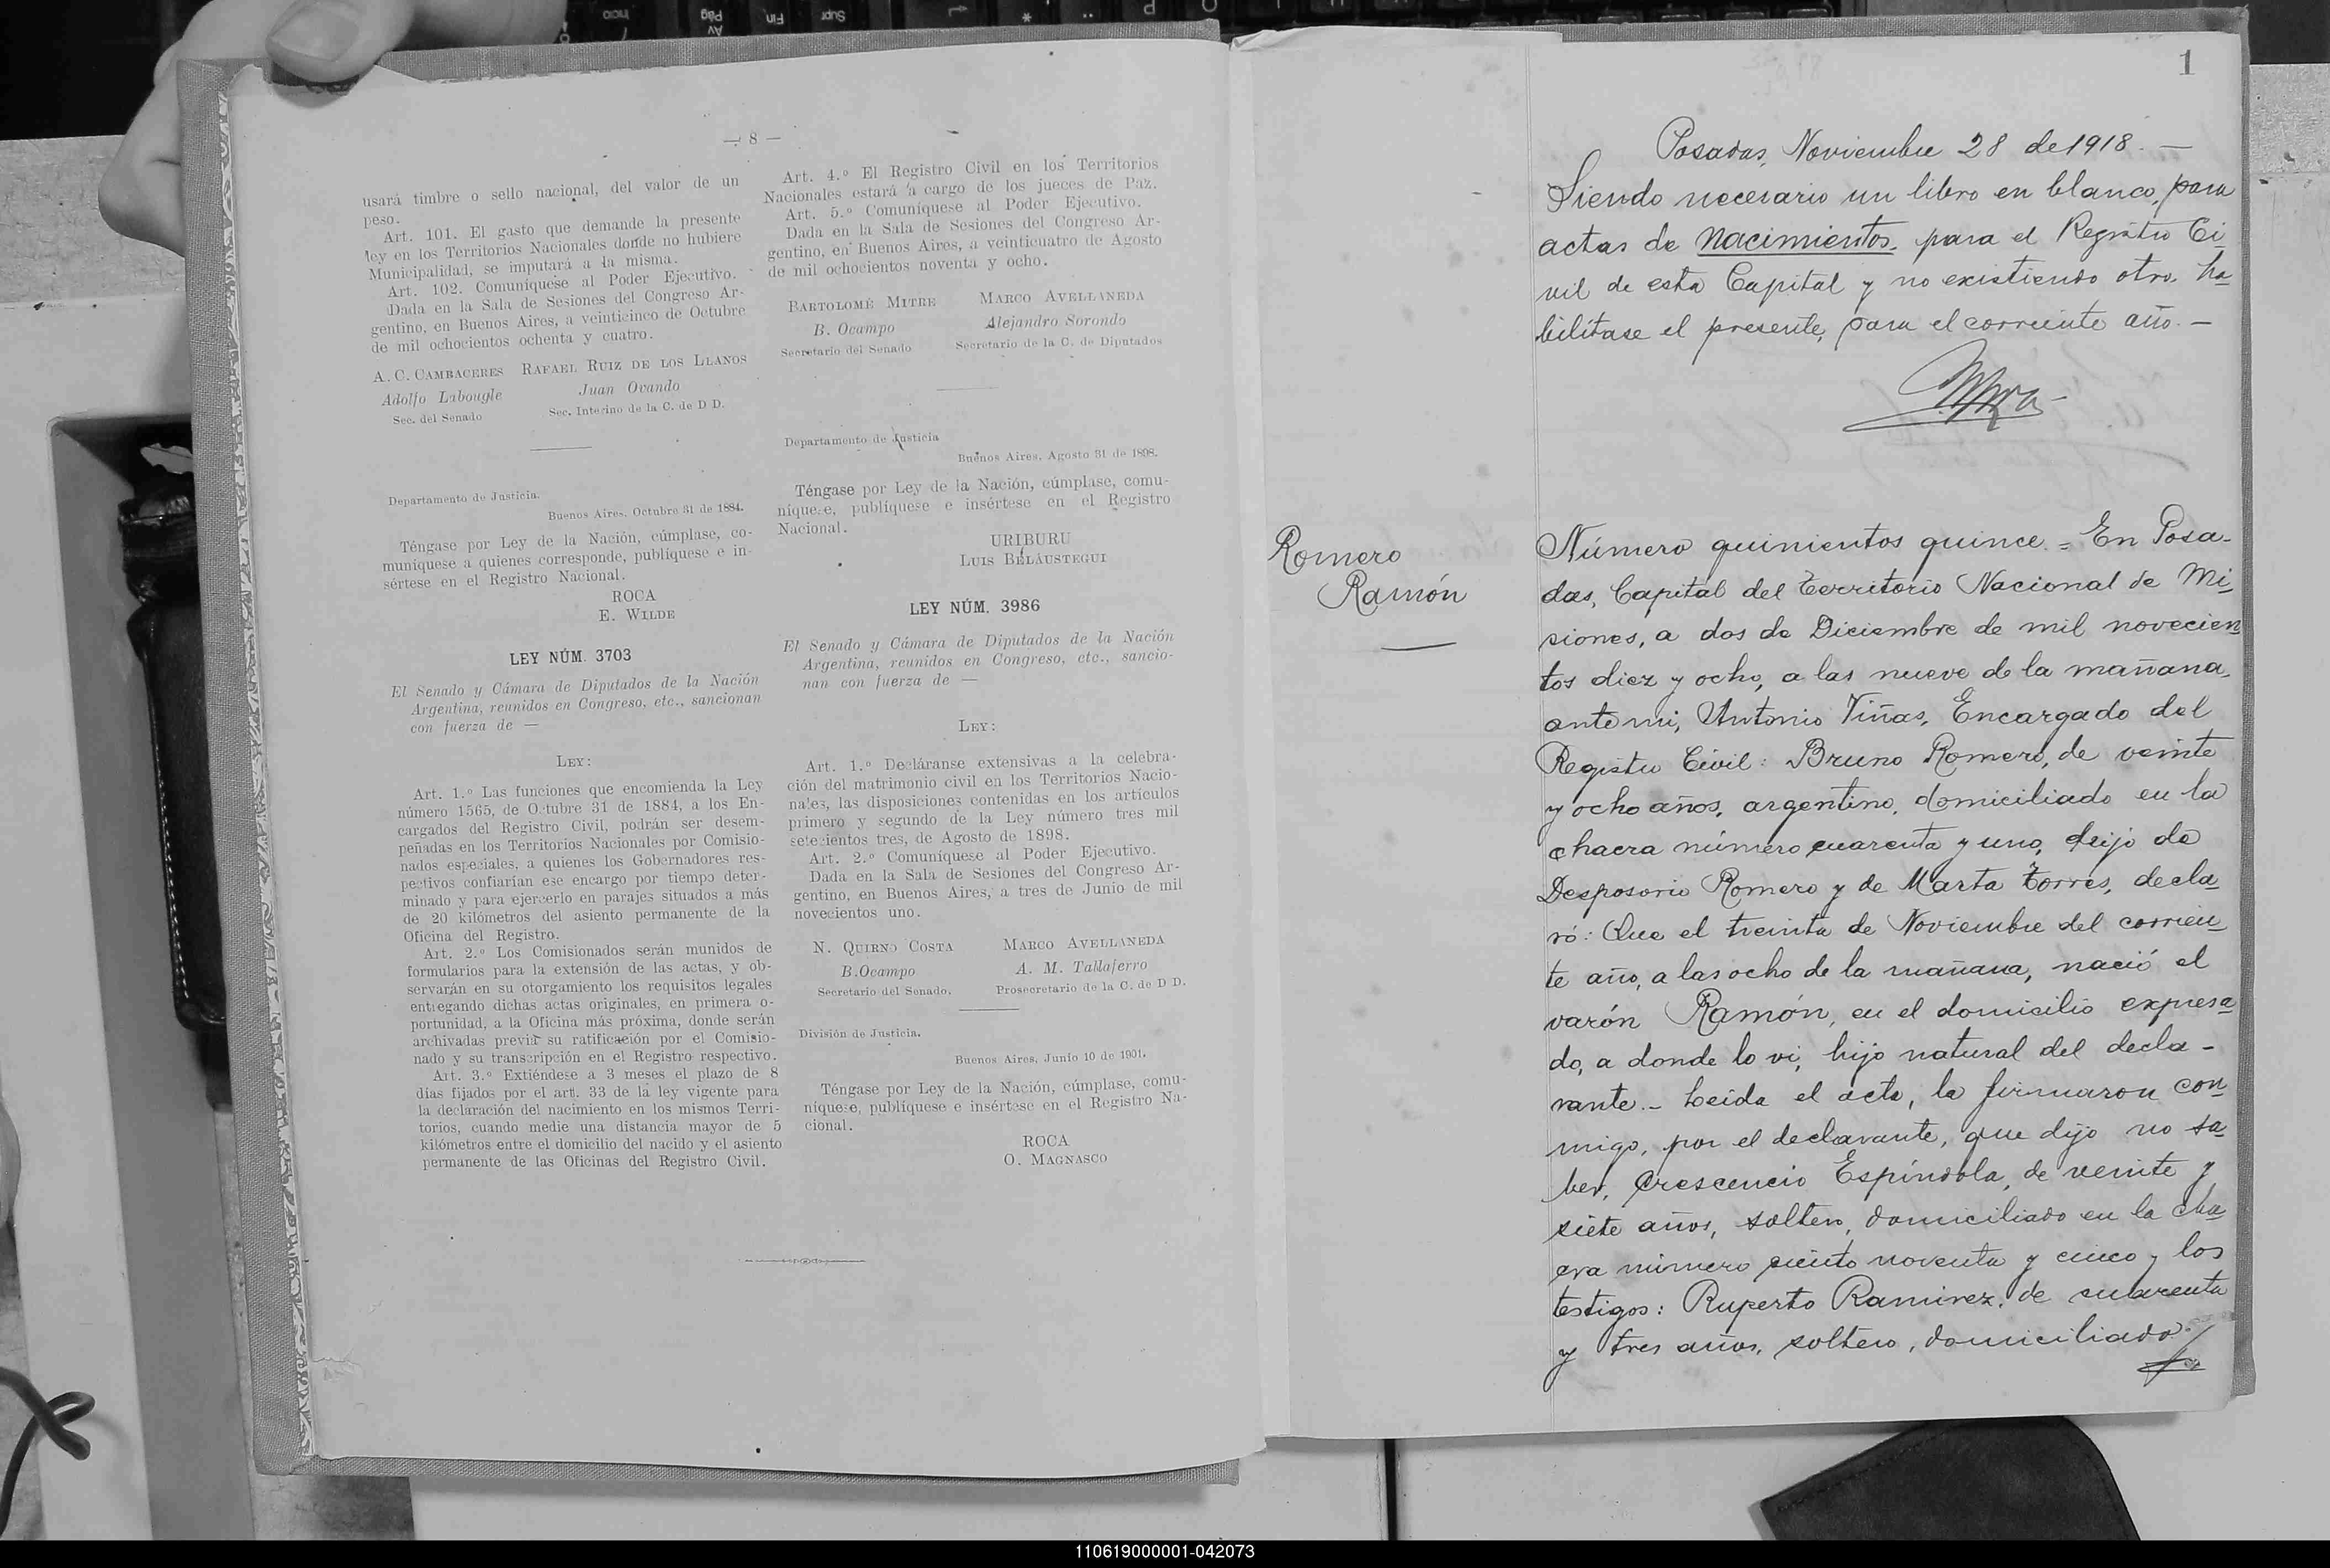 — 8 —
usará timbre o sello nacional, del valor de un
peso.
Art. 101. El gasto que demande la presente
ley en los Territorios Nacionales donde no hubiere
Municipalidad, se imputará a la misma.
Art. 102. Comuníquese al Poder Ejecutivo.
Dada en la Sala de Sesiones del Congreso Ar-
gentino, en Buenos Aires, a veinticinco de Octubre
de mil ochocientos ochenta y cuatro.
A. C. CAMBACERES RAFAEL RUIZ DE LOS LLANOS
Adolfo Labougle Juan Ovando
Sec. del Senado Sec. Interino de la C. de D D.
Departamento de Justicia.
Buenos Aires, Octubre 31 de 1884.
Téngase por Ley de la Nación, cúmplase, co-
muníquese a quienes corresponde, publíquese e in-
sértese en el Registro Nacional.
ROCA
E. WILDE
LEY NÚM. 3703
El Senado y Cámara de Diputados de la Nación
Argentina, reunidos en Congreso, etc., sancionan
con fuerza de —
LEY:
Art. 1.º Las funciones que encomienda la Ley
número 1565, de Octubre 31 de 1884, a los En-
cargados del Registro Civil, podrán ser desem-
peñadas en los Territorios Nacionales por Comisio-
nados especiales, a quienes los Gobernadores res-
pectivos confiarían ese encargo por tiempo deter-
minado y para ejercerlo en parajes situados a más
de 20 kilómetros del asiento permanente de la
Oficina del Registro.
Art. 2.º Los Comisionados serán munidos de
formularios para la extensión de las actas, y ob-
servarán en su otorgamiento los requisitos legales
entregando dichas actas originales, en primera o-
portunidad, a la Oficina más próxima, donde serán
archivadas previa su ratificación por el Comisio-
nado y su transcripción en el Registro respectivo.
Art. 3.º Extiéndese a 3 meses el plazo de 8
días fijados por el art. 33 de la ley vigente para
la declaración del nacimiento en los mismos Terri-
torios, cuando medie una distancia mayor de 5
kilómetros entre el domicilio del nacido y el asiento
permanente de las Oficinas del Registro Civil.
Art. 4.º El Registro Civil en los Territorios
Nacionales estará a cargo de los jueces de Paz.
Art. 5.º Comuníquese al Poder Ejecutivo.
Dada en la Sala de Sesiones del Congreso Ar-
gentino, en Buenos Aires, a veinticuatro de Agosto
de mil ochocientos noventa y ocho.
BARTOLOMÉ MITRE MARCO AVELLANEDA
B. Ocampo Alejandro Sorondo
Secretario del Senado Secretario de la C. de Diputados
Departamento de Justicia
Buenos Aires, Agosto 31 de 1898.
Téngase por Ley de la Nación, cúmplase, comu-
níquese, publíquese e insértese en el Registro
Nacional.
URIBURU
LUIS BELÁUSTEGUI
LEY NÚM. 3986
El Senado y Cámara de Diputados de la Nación
Argentina, reunidos en Congreso, etc., sancio-
nan con fuerza de —
LEY:
Art. 1.º Decláranse extensivas a la celebra-
ción del matrimonio civil en los Territorios Nacio-
nales, las disposiciones contenidas en los artículos
primero y segundo de la Ley número tres mil
setecientos tres, de Agosto de 1898.
Art. 2.º Comuníquese al Poder Ejecutivo.
Dada en la Sala de Sesiones del Congreso Ar-
gentino, en Buenos Aires, a tres de Junio de mil
novecientos uno.
N. QUIRNO COSTA MARCO AVELLANEDA
B. Ocampo A. M. Tallaferro
Secretario del Senado. Prosecretario de la C. de D D.
División de Justicia.
Buenos Aires, Junio 10 de 1901.
Téngase por Ley de la Nación, cúmplase, comu-
níquese, publíquese e insértese en el Registro Na-
cional.
ROCA
O. MAGNASCO
1
Posadas, Noviembre 28 de 1918. —
Siendo necesario un libro en blanco, para
actas de Nacimientos, para el Registro Ci-
vil de esta Capital y no existiendo otro, ha-
bilítase el presente, para el corriente año. —
Romero
Ramón
Número quinientos quince = En Posa-
das, Capital del Territorio Nacional de Mi-
siones, a dos de Diciembre de mil novecien-
tos diez y ocho, a las nueve de la mañana,
ante mi, Antonio Viñas, Encargado del
Registro Civil: Bruno Romero, de veinte
y ocho años, argentino, domiciliado en la
chacra número cuarenta y uno, hijo de
Desposorio Romero y de Marta Torres, decla-
ró: Que el treinta de Noviembre del corrien-
te año, a las ocho de la mañana, nació el
varón Ramón, en el domicilio expresa-
do, a donde lo vi, hijo natural del decla-
rante. - Leída el acta, la firmaron con-
migo, por el declarante, que dijo no sa-
ber, Crescencio Espíndola, de veinte y
siete años, soltero, domiciliado en la cha-
cra número ciento noventa y cinco y los
testigos: Ruperto Ramirez, de cuarenta
y tres años, soltero, domiciliado
110619000001-042073